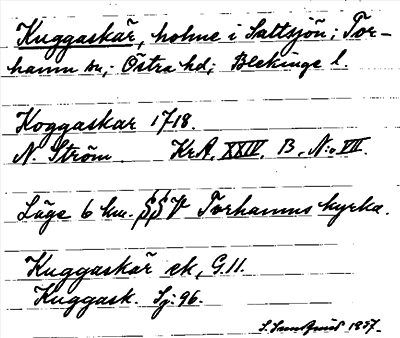 Kuggaskär, holme i Saltsjön; Tor-
hamn sn; Östra hd; Blekinge l.
Koggaskar 1718.
N. Ström KrA, XXIV, B, N:o VII.
Läge 6 km. SSV Torhamns kyrka.
Kuggaskär ek, G.11.
Kuggask. Sj: 96.
1937.